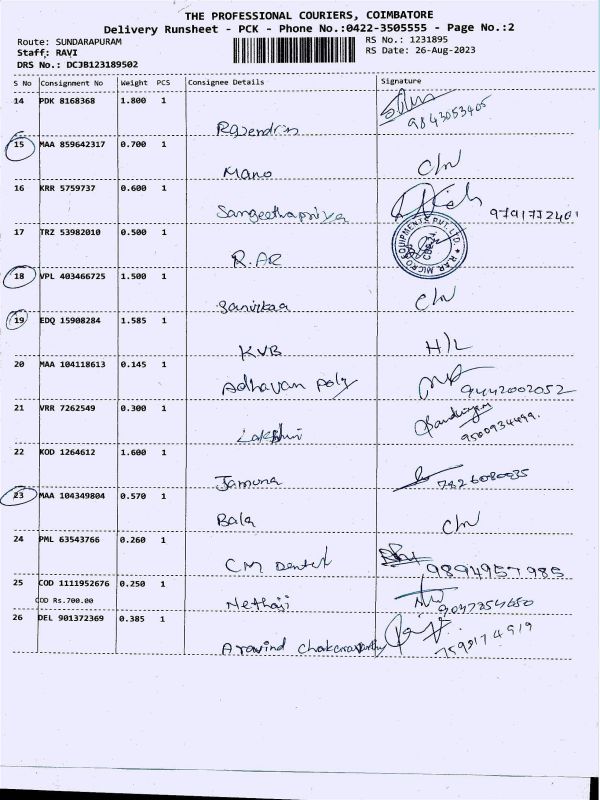 THE PROFESSIONAL COURIERS, COIMBATORE
Delivery Runsheet - PCK - Phone No.:0422-3505555 - Page No.:2
Route: SUNDARAPURAM RS No.: 1231895
Staff: RAVI RS Date: 26-Aug-2023
DRS No.: DCJB123189502
S No Consignment No Weight PCS Consignee Details Signature
14 PDK 8168368 1.800 1
9843053405
Rajendrin
15 MAA 859642317 0.700 1
Mano C/N
16 KRR 5759737 0.600 1
Sangeethapriya 9791772401
17 TRZ 53982010 0.500 1
R.AR
R.A.R MICROEQUIPMENTS PVT. LTD.
18 VPL 403466725 1.500 1
Sanvikaa C/N
19 EDQ 15908284 1.585 1
KVB H/L
20 MAA 104118613 0.145 1
Adhavan poly 9442002052
21 VRR 7262549 0.300 1
Lakshmi 9500934499.
22 KOD 1264612 1.600 1
Jamuna 7826080035
23 MAA 104349804 0.570 1
Bala C/N
24 PML 63543766 0.260 1
CM Dentct 9894957985
25 COD 1111952676 0.250 1
COD Rs.700.00
Nethaji 9047354650
26 DEL 901372369 0.385 1
Aravind Chakaravarthy 7599174919